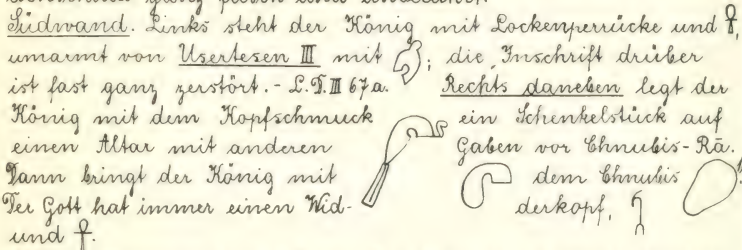 Südwand. Links steht der König mit Lockenperrücke und ☥,
umarmt von Usertesen III mit ; die Inschrift drüber
ist fast ganz zerstört. - L.D. III 67a. Rechts daneben legt der
König mit dem Kopfschmuck ein Schenkelstück auf
einen Altar mit anderen Gaben vor Chnubis-Rā.
Dann bringt der König mit dem Chnubis
Der Gott hat immer einen Widderkopf,
und ☥.